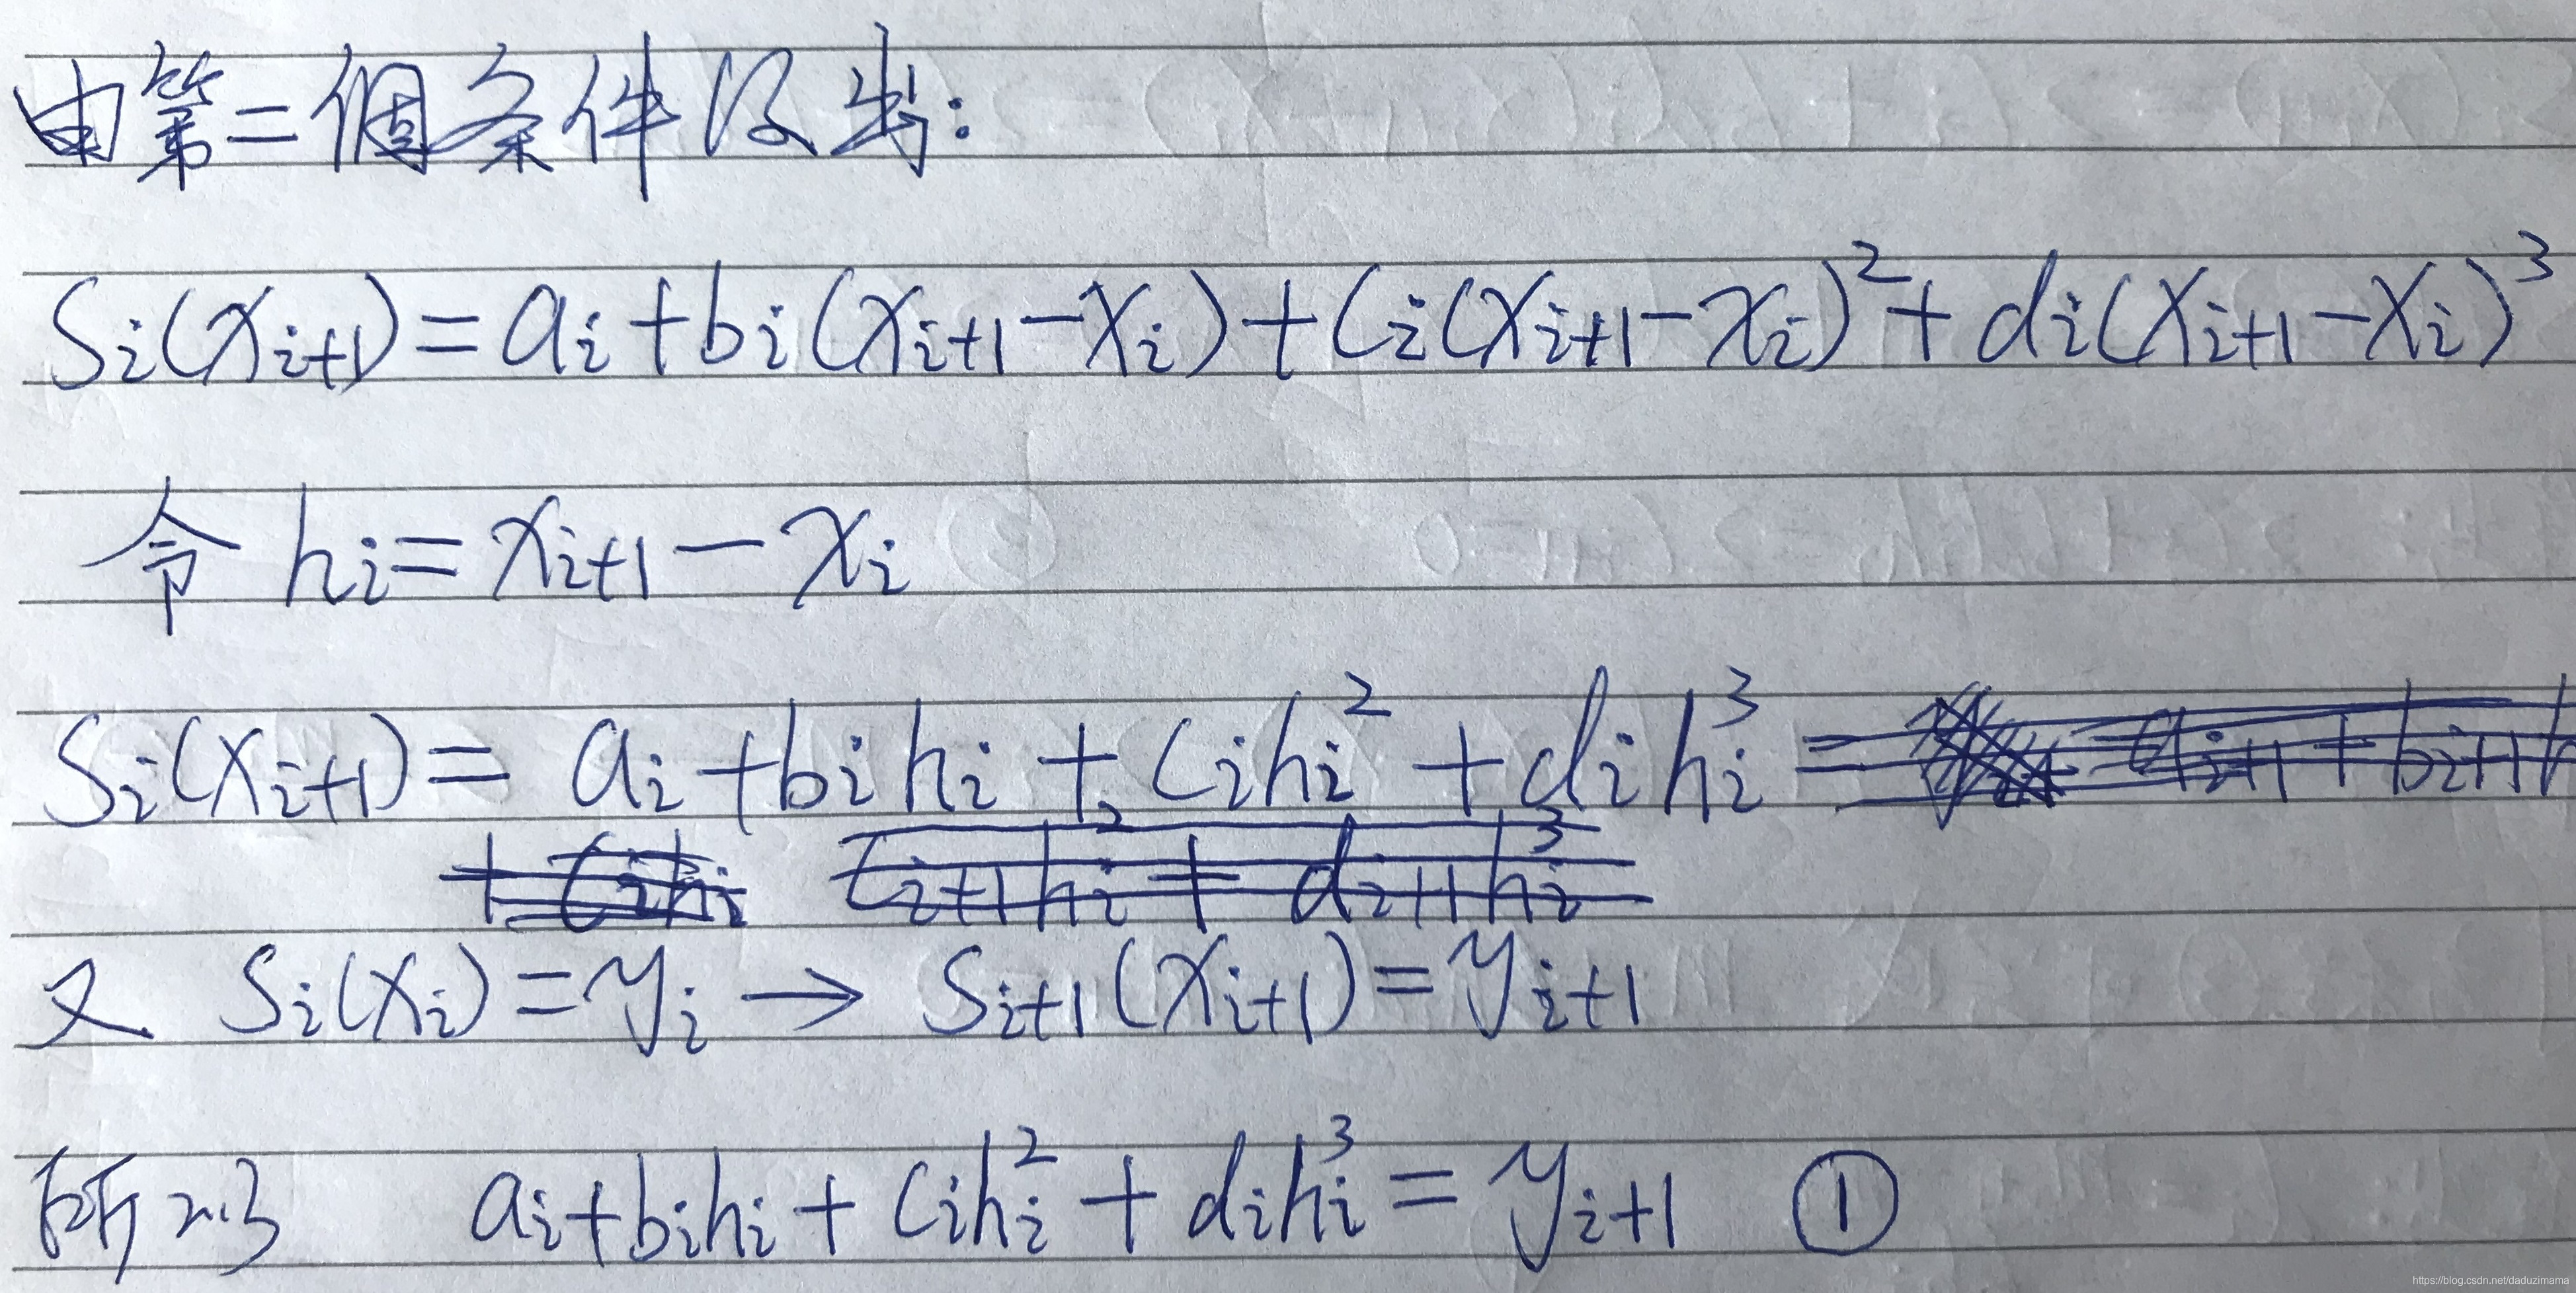 由第二個条件得出:
S_i(x_{i+1}) = a_i + b_i(x_{i+1} - x_i) + c_i(x_{i+1} - x_i)^2 + d_i(x_{i+1} - x_i)^3
令 h_i = x_{i+1} - x_i
S_i(x_{i+1}) = a_i + b_i h_i + c_i h_i^2 + d_i h_i^3
又 S_i(x_i) = y_i → S_{i+1}(x_{i+1}) = y_{i+1}
所以 a_i + b_i h_i + c_i h_i^2 + d_i h_i^3 = y_{i+1} ①
https://blog.csdn.net/daduzimama